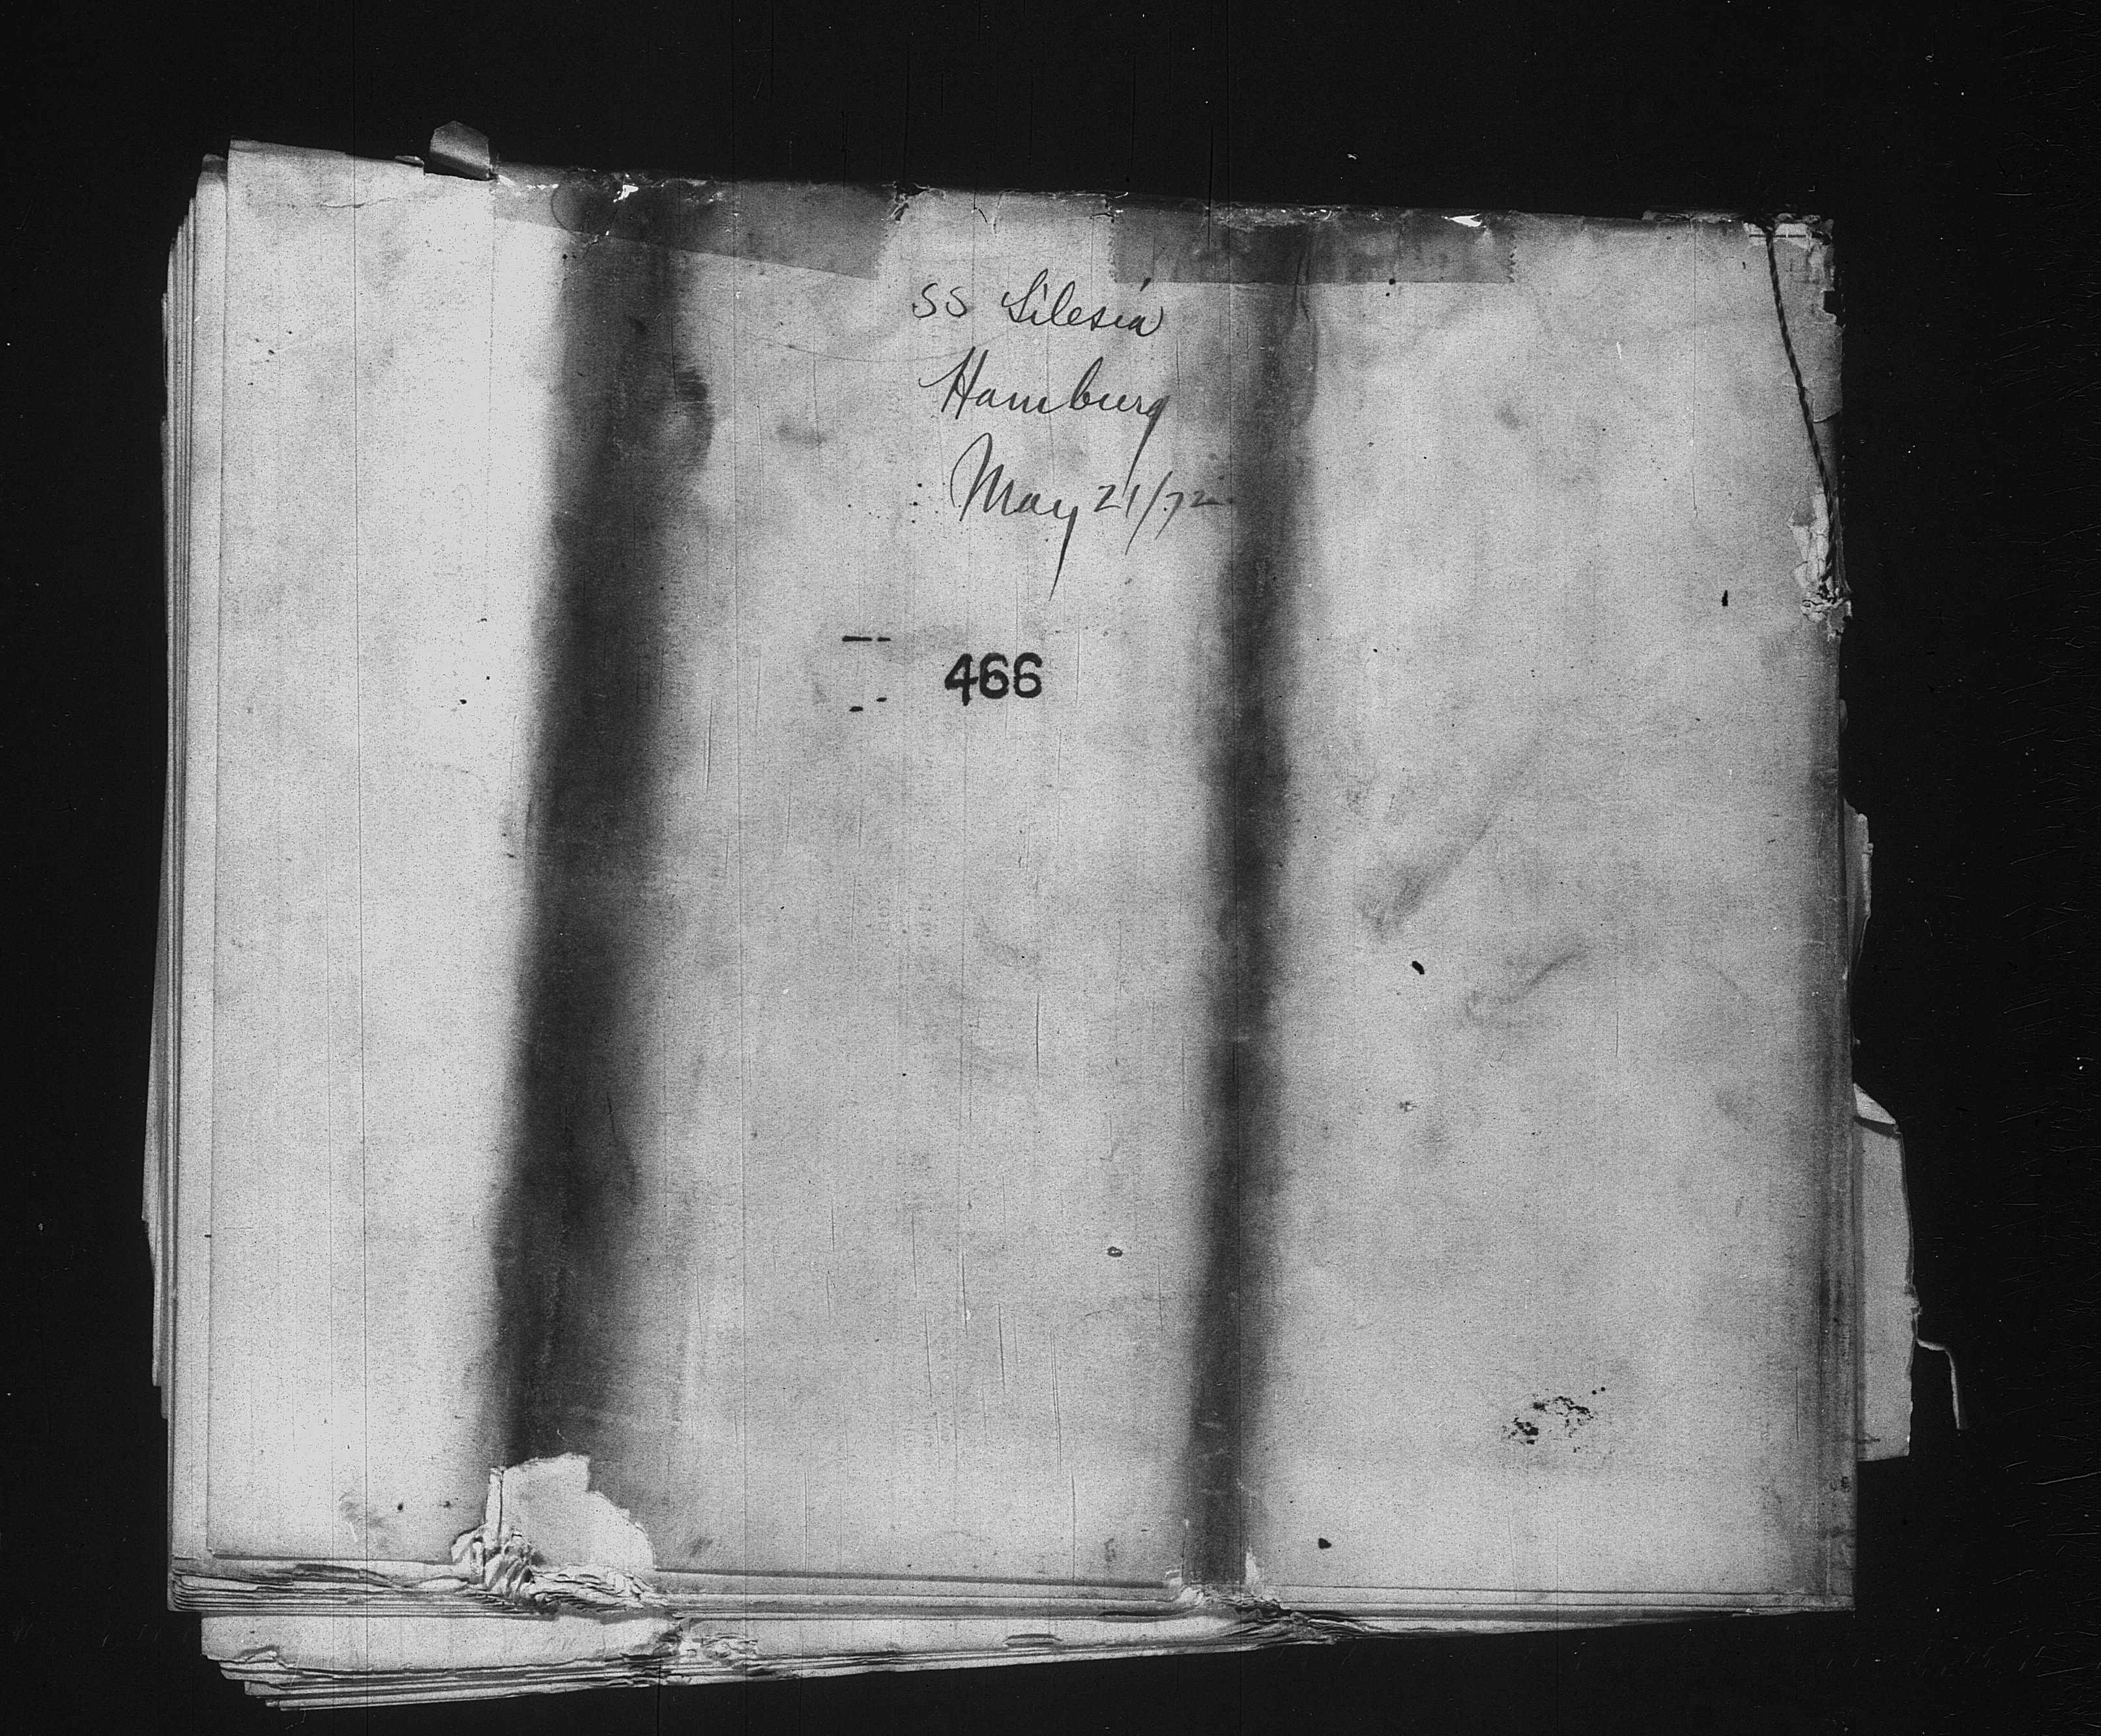 SS Silesia
Hamburg
May 21/72
466